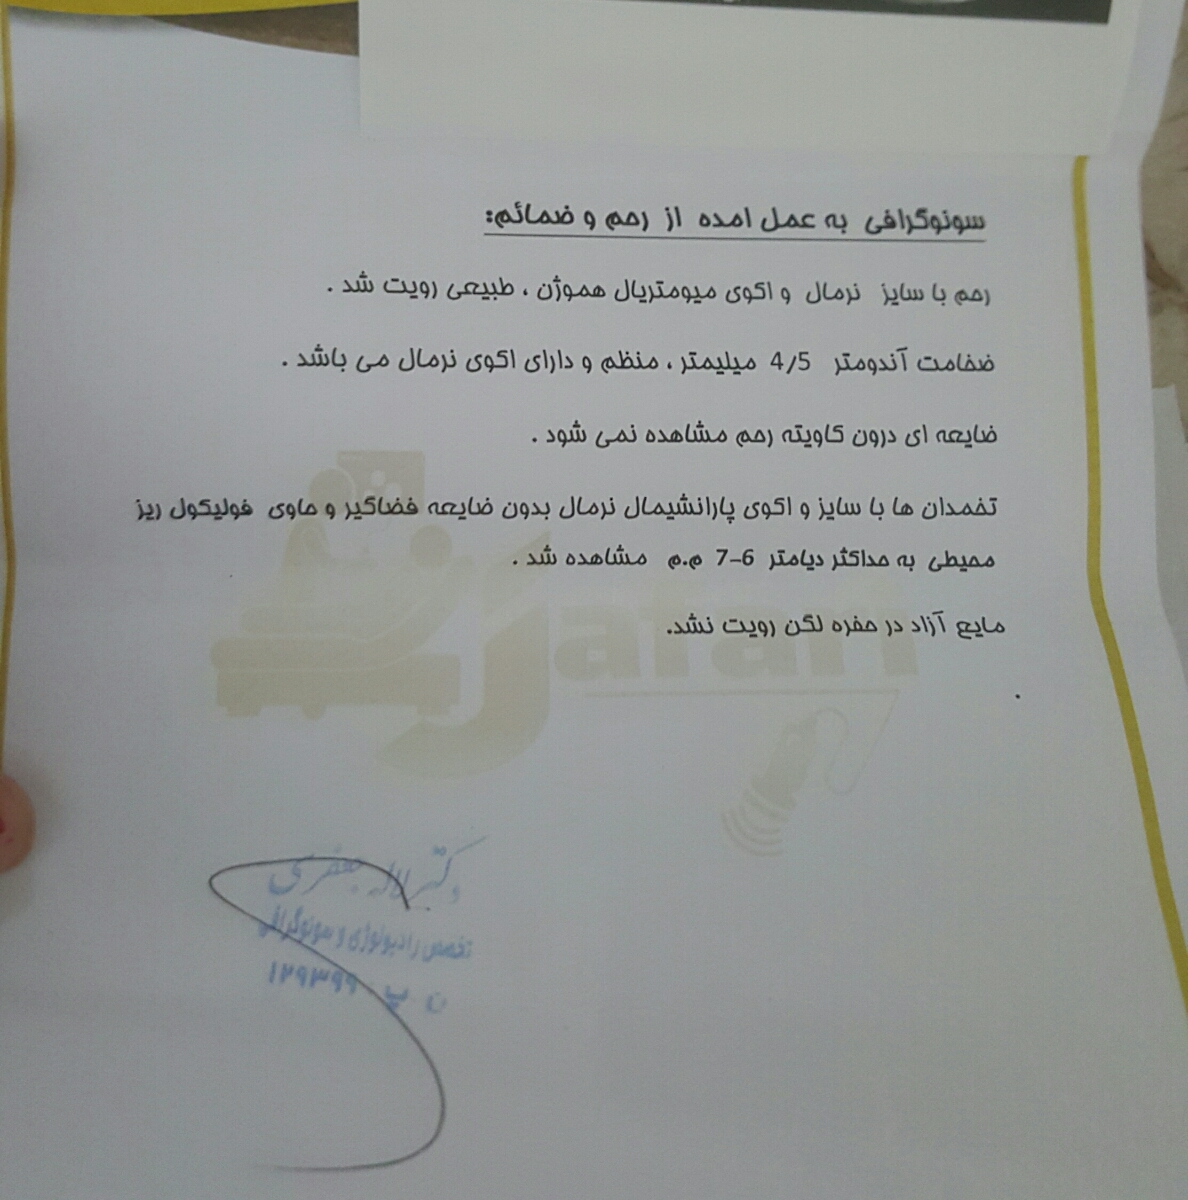 سونوگرافی به عمل امده از رحم و ضمائم:
رحم با سایز نرمال و اکوی میومتریال هموژن ، طبیعی رویت شد .
ضخامت آندومتر 4/5 میلیمتر ، منظم و دارای اکوی نرمال می باشد .
ضایعه ای درون کاویته رحم مشاهده نمی شود .
تخمدان ها با سایز و اکوی پارانشیمال نرمال بدون ضایعه فضاگیر و حاوی فولیکول ریز
محیطی به حداکثر دیامتر 6-7 م.م مشاهده شد .
مایع آزاد در حفره لگن رویت نشد.
Jafari
دکتر لاله جعفری
تخصص رادیولوژی و سونوگرافی
ن پ ۱۲۹۳۹۹